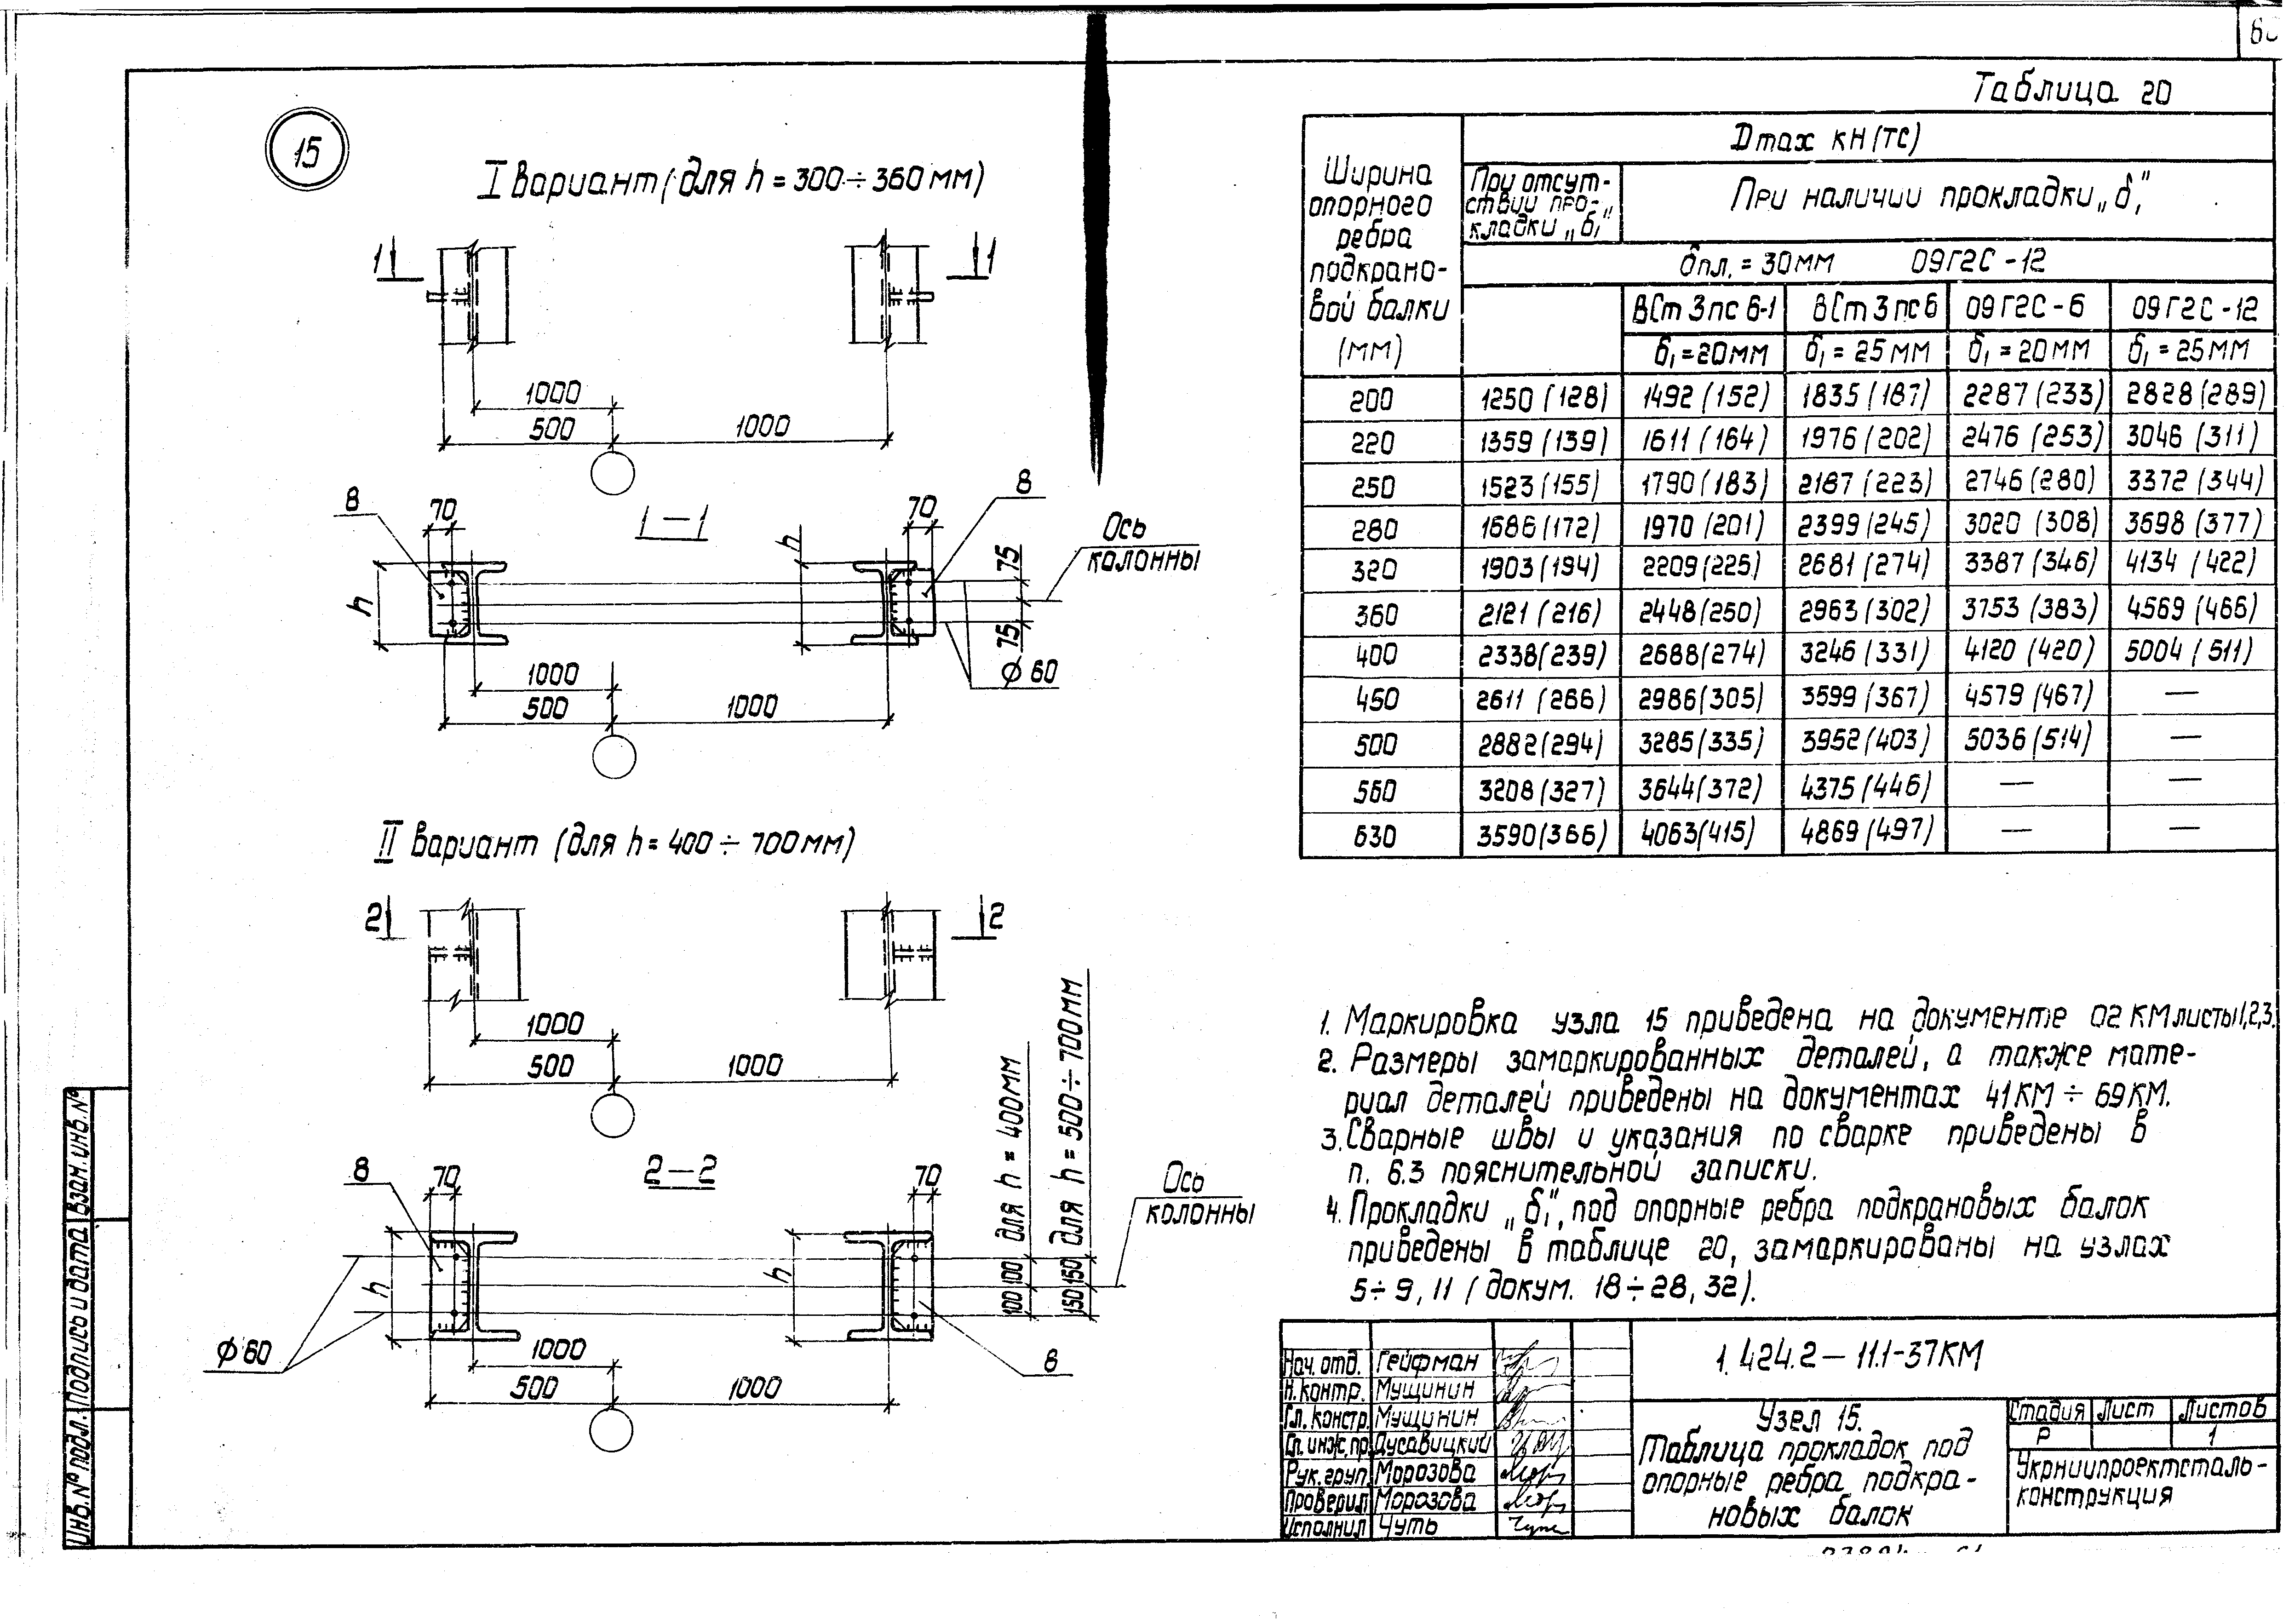 15
I вариант (для h = 300 ÷ 360 мм)
1 1
1000
500 1000
8 70 1–1 70 8
Ось
колонны
h h 75 75
Ф 60
1000
500 1000
II вариант (для h = 400 ÷ 700 мм)
2 2
1000
500 1000
для h = 400 мм
для h = 500 ÷ 700 мм
8 70 2–2 70
Ось
колонны
h h 100 100 150 150
Ф 60
8
1000
500 1000
Таблица 20
Ширина опорного ребра подкрано-вой балки (мм)
Dmax кН (тс)
При отсут-ствии про-кладки „δ₁"
При наличии прокладки „δ₁"
δпл. = 30 мм 09Г2С-12
ВСт 3 пс 6-1 ВСт 3 пс 6 09Г2С-6 09Г2С-12
δ₁ = 20 мм δ₁ = 25 мм δ₁ = 20 мм δ₁ = 25 мм
200 1250 (128) 1492 (152) 1835 (187) 2287 (233) 2828 (289)
220 1359 (139) 1611 (164) 1976 (202) 2476 (253) 3046 (311)
250 1523 (155) 1790 (183) 2187 (223) 2746 (280) 3372 (344)
280 1686 (172) 1970 (201) 2399 (245) 3020 (308) 3698 (377)
320 1903 (194) 2209 (225) 2681 (274) 3387 (346) 4134 (422)
360 2121 (216) 2448 (250) 2963 (302) 3753 (383) 4569 (466)
400 2338 (239) 2688 (274) 3246 (331) 4120 (420) 5004 (511)
450 2611 (266) 2986 (305) 3599 (367) 4579 (467) —
500 2882 (294) 3285 (335) 3952 (403) 5036 (514) —
560 3208 (327) 3644 (372) 4375 (446) — —
630 3590 (366) 4063 (415) 4869 (497) — —
1. Маркировка узла 15 приведена на документе 02 КМ листы 1,2,3.
2. Размеры замаркированных деталей, а также мате-
риал деталей приведены на документах 41КМ ÷ 69КМ.
3. Сварные швы и указания по сварке приведены в
п. 6.3 пояснительной записки.
4. Прокладки „δ₁", под опорные ребра подкрановых балок
приведены в таблице 20, замаркированы на узлах
5÷9, 11 (докум. 18÷28, 32).
Нач. отд. Гейфман
Н. контр. Мущинин
Гл. констр. Мущинин
Гл. инж. пр. Дусавицкий
Рук. груп. Морозова
Проверил Морозова
Исполнил Чуть
1.424.2–11.1-37КМ
Узел 15.
Таблица прокладок под
опорные ребра подкра-
новых балок
Стадия Лист Листов
Р 1
Укрниипроектсталь-
конструкция
Инв. № подл. Подпись и дата Взам. инв. №